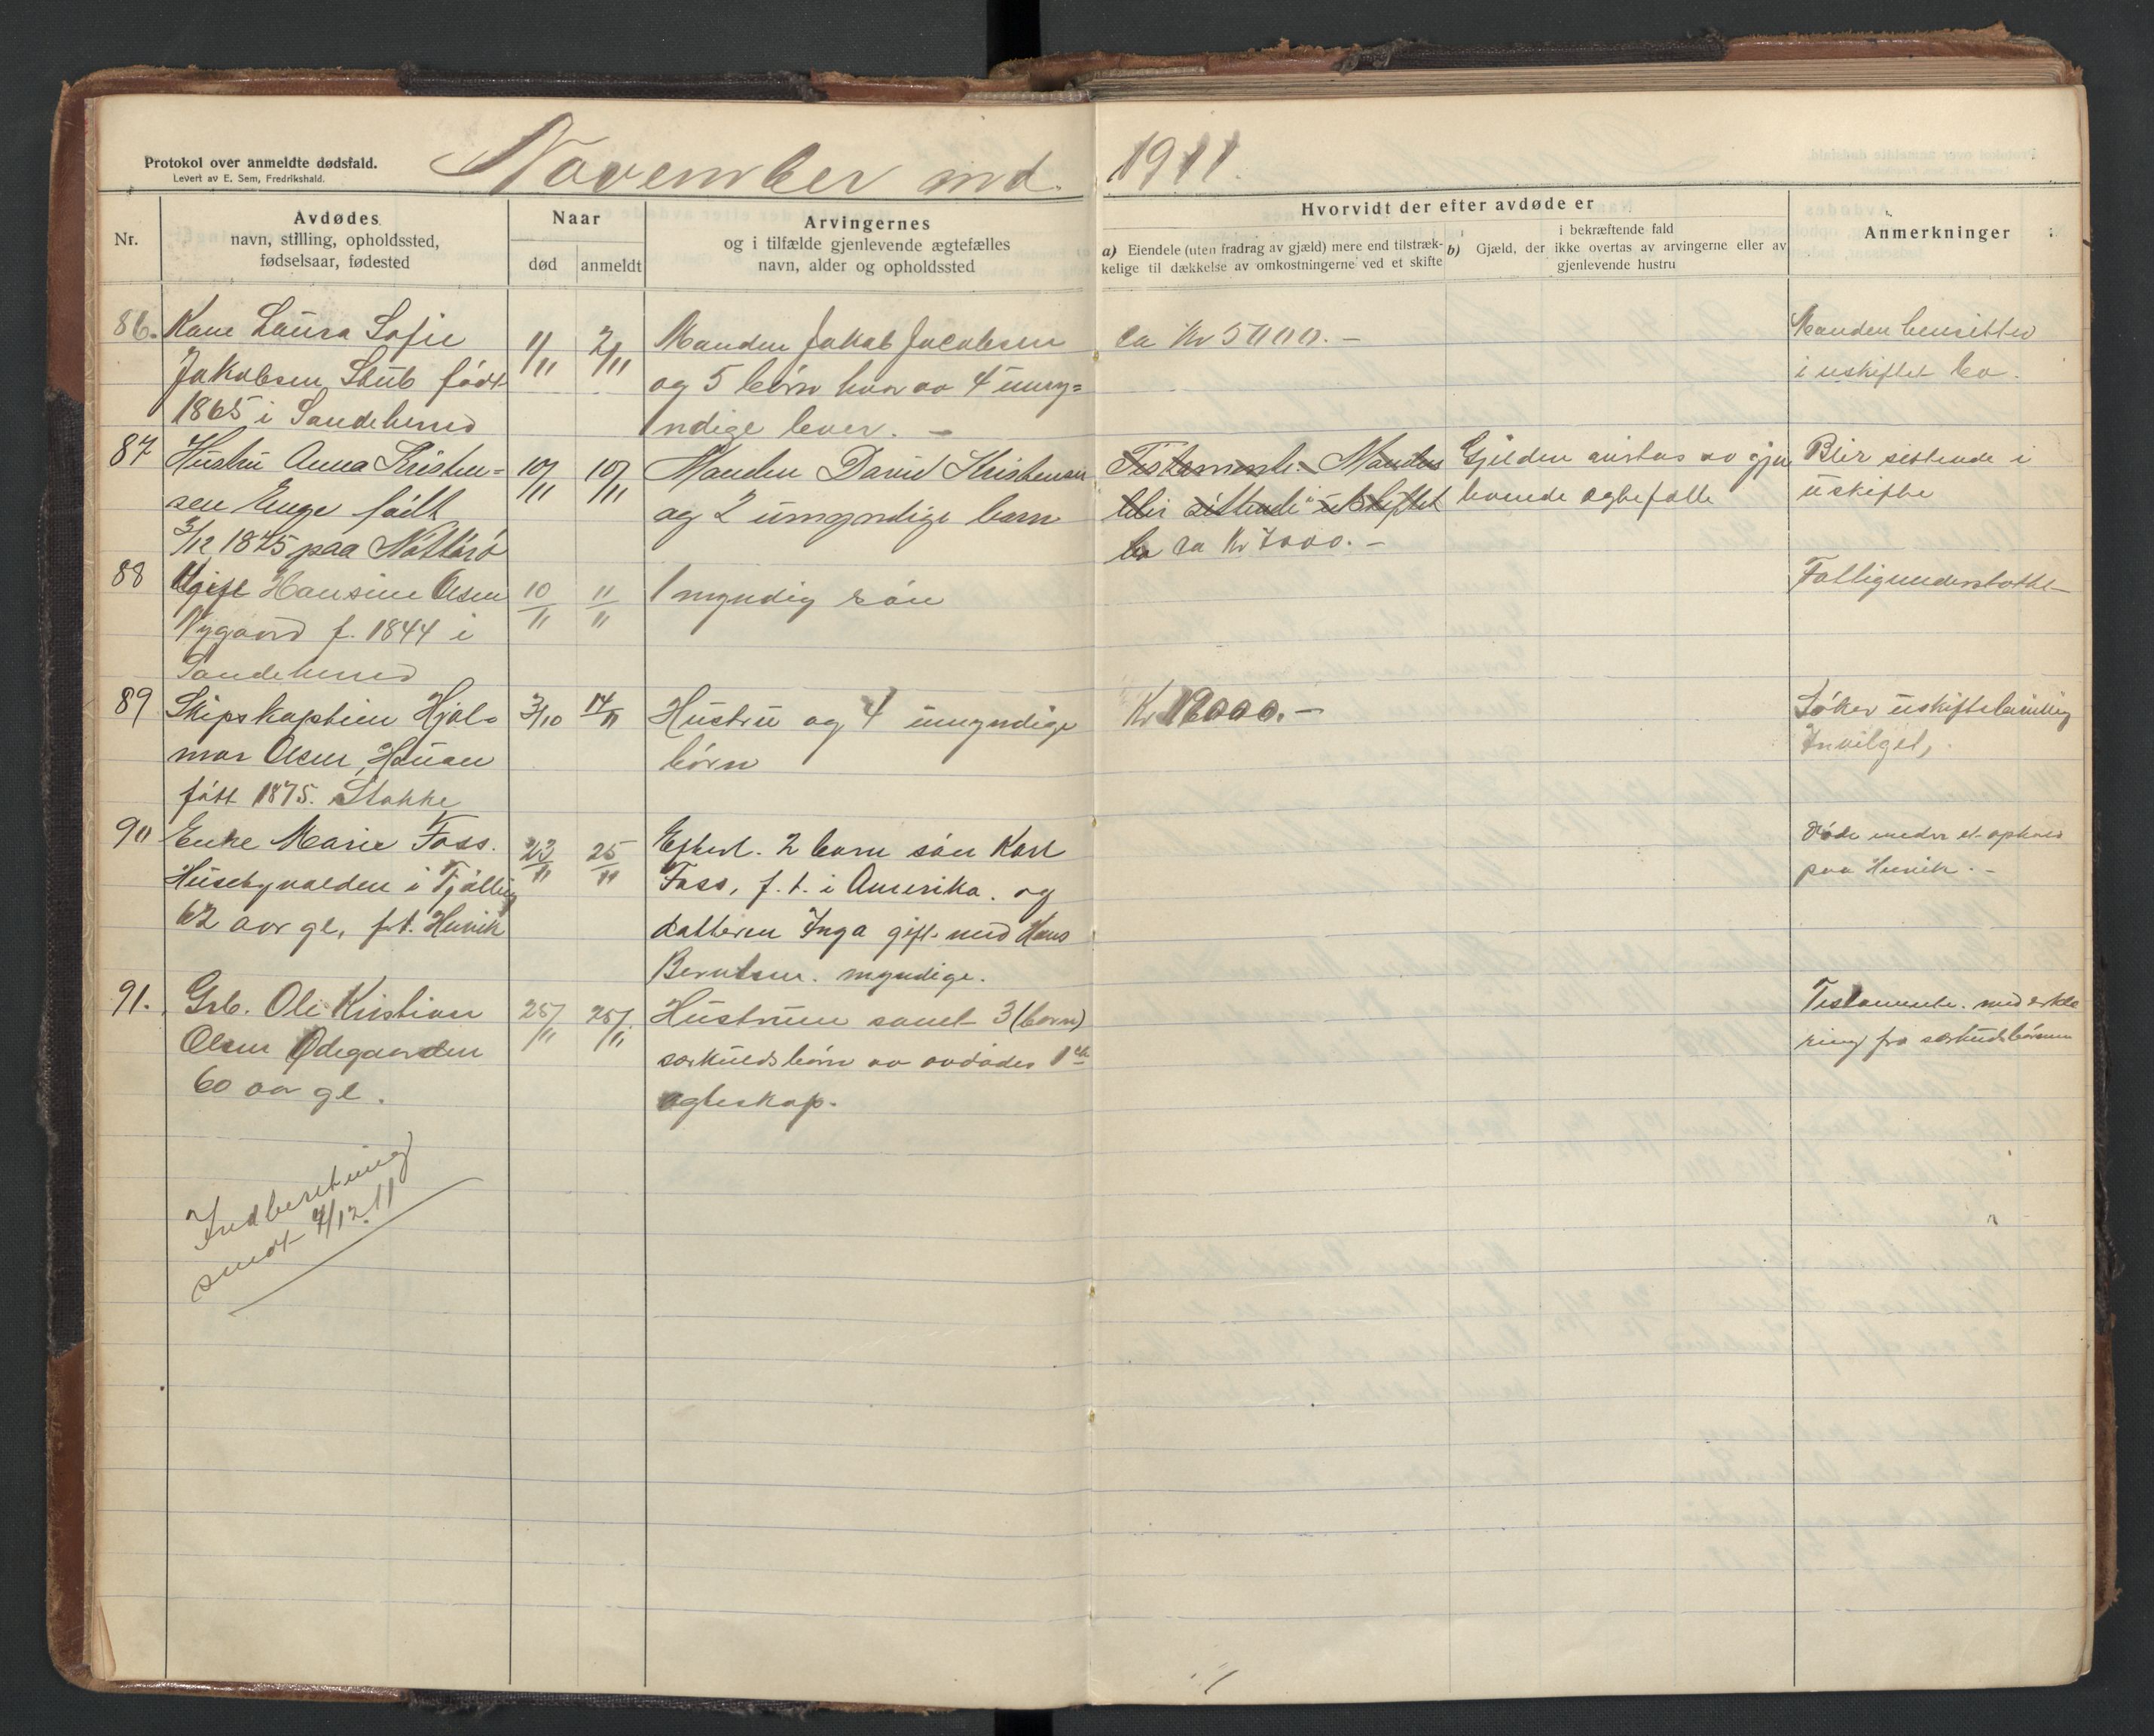 Protokol over anmeldte dødsfald.
Levert av E. Sem, Fredrikshald.
November md. 1911.
Nr.
Avdødes
navn, stilling, opholdssted,
fødselsaar, fødested
Naar
død
anmeldt
Arvingernes
og i tilfælde gjenlevende ægtefælles
navn, alder og opholdssted
Hvorvidt der efter avdøde er
a) Eiendele (uten fradrag av gjæld) mere end tilstræk-
kelige til dækkelse av omkostningerne ved et skifte
i bekræftende fald
b) Gjæld, der ikke overtas av arvingerne eller av
gjenlevende hustru
Anmerkninger
86. Kone Laura Sofie
Jakobsen Stub født
1865 i Sandeherred
1/11
2/11
Manden Jakob Jacobsen
og 5 børn hvor av 4 umy=
ndige lever. –
ca Kr 5000. –
Manden hensitter
i uskiftet bo.
87 Hustru Anna Kristen=
sen Enge født
3/12 1875 paa Nøtterø
10/11
10/11
Manden David Kristensen
og 2 umyndige barn
Testamente. Manden
blir sittende i uskiftet
bo ca Kr 7000. –
Gjelden avertas av gjen
levende egtefelle
Blir sittende i
uskifte
88 Ugift Hansine Olsen
Nygaard f. 1844 i
Sandeherred
10/11
11/11
1 myndig søn
Fattigunderstøttet
89 Skipskaptein Hjal=
mar Olsen, Hauan
født 1875. Stokke
3/10
14/11
Hustru og 4 umyndige
børn
Kr 12000. –
Søker uskiftebevilling
Invilget,
90 Enke Marie Foss.
Husebyvalden i Tjølling
62 aar gl, f.t. Husvik
23/11
25/11
Efterl. 2 barn søn Karl
Foss, f.t. i Amerika. og
datteren Inga gift med Hans
Berntsen. myndige.
Døde under et ophold
paa Husvik. –
91. Grb. Ole Kristian
Olsen Ødegaarden
60 aar gl.
25/11
25/11
Hustruen samt 3 (børn)
særkuldsbørn av avdødes 1ste
egteskap.
Testamente. med erklæ
ring fra særkuldsbørnene
Indberetning
sendt 4/12.11